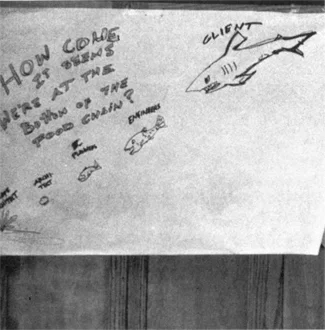 HOW COME
IT SEEMS
WE'RE AT THE
BOTTOM OF THE
FOOD CHAIN?
CLIENT
ENGINEERS
PLANNER
ARCHI-
TECT